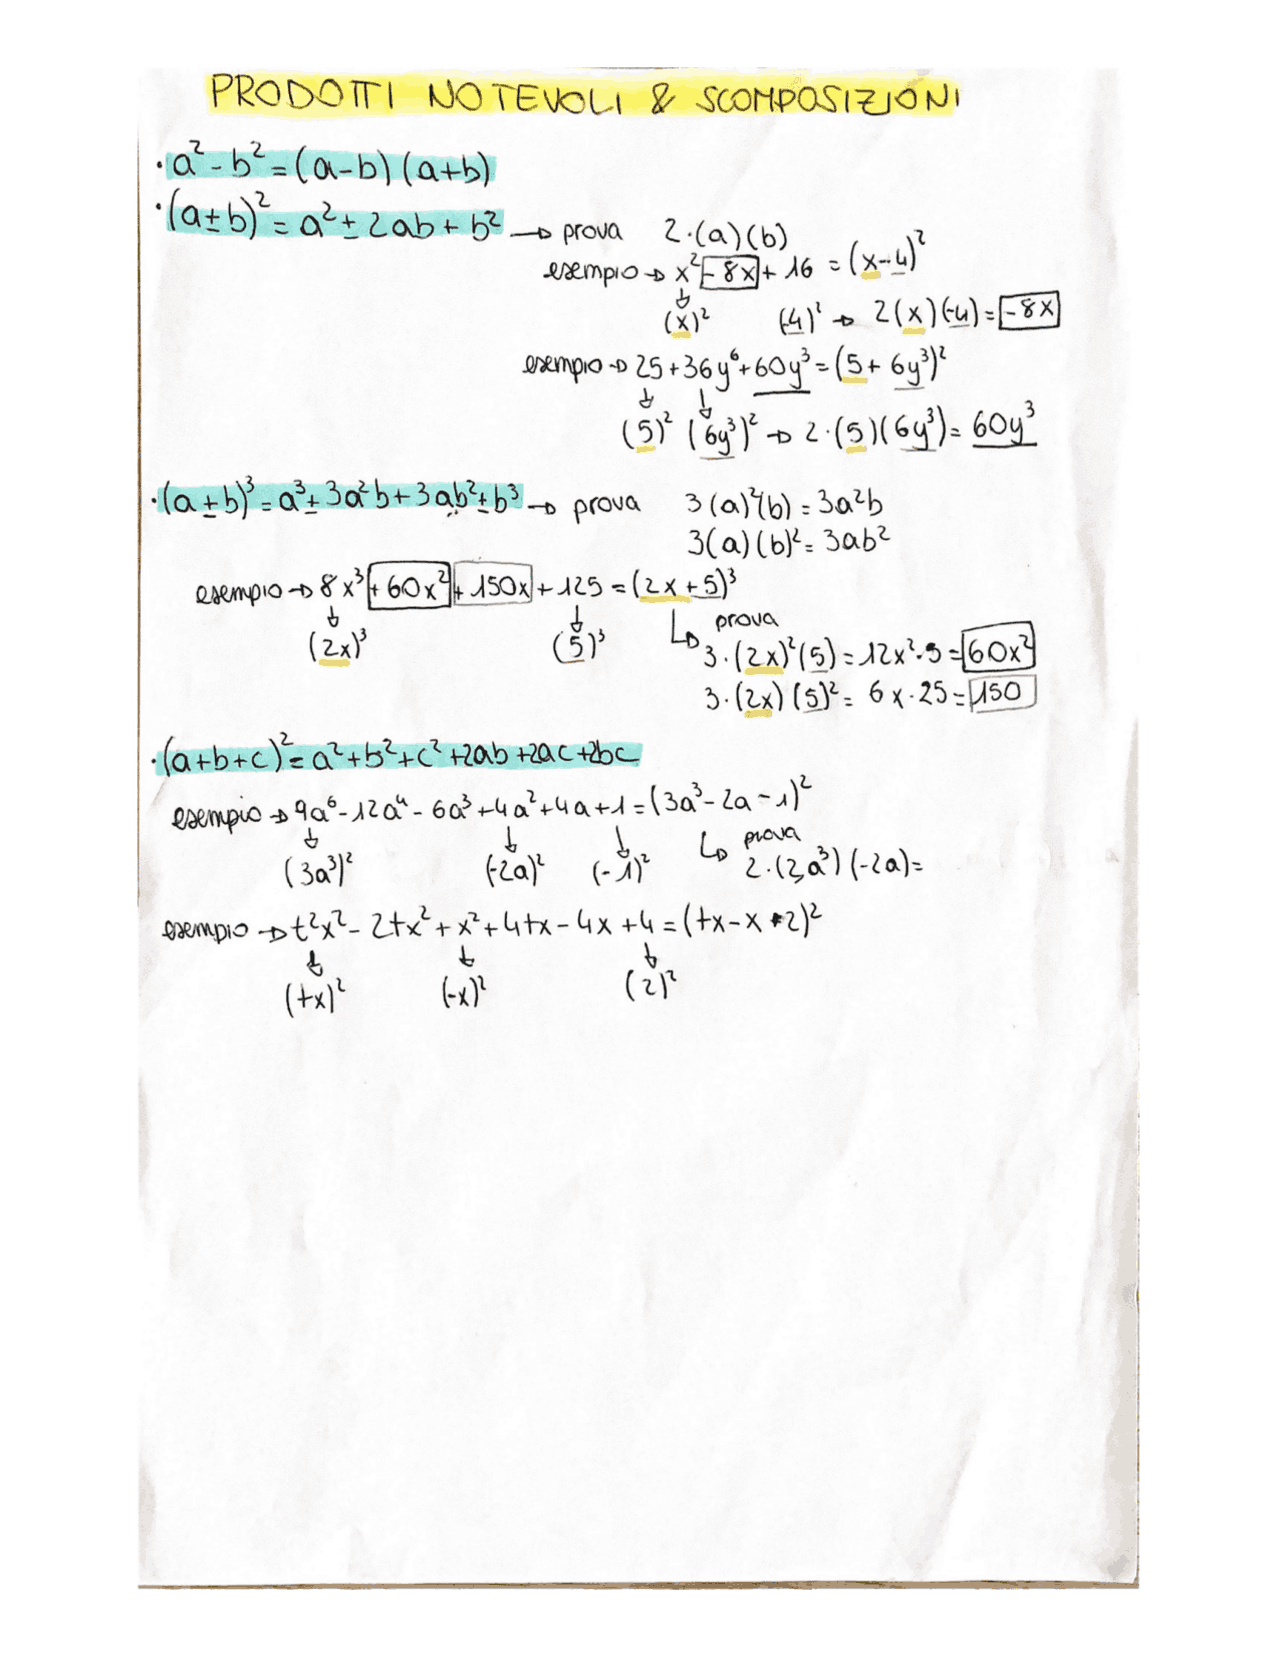 PRODOTTI NOTEVOLI & SCOMPOSIZIONI
· a² - b² = (a-b) (a+b)
· (a±b)² = a² ± 2ab + b² → prova 2·(a)(b)
esempio → x² - 8x + 16 = (x-4)²
↓
(x)² (-4)² → 2(x)(-4) = -8x
esempio → 25 + 36y⁶ + 60y³ = (5 + 6y³)²
↓ ↓
(5)² (6y³)² → 2·(5)(6y³) = 60y³
· (a±b)³ = a³ ± 3a²b + 3ab² ± b³ → prova 3(a)²(b) = 3a²b
3(a)(b)² = 3ab²
esempio → 8x³ + 60x² + 150x + 125 = (2x+5)³
↓ ↓ ↳ prova
(2x)³ (5)³ 3·(2x)²(5) = 12x²·5 = 60x²
3·(2x)(5)² = 6x·25 = 150
· (a+b+c)² = a² + b² + c² + 2ab + 2ac + 2bc
esempio → 9a⁶ - 12a⁴ - 6a³ + 4a² + 4a + 1 = (3a³ - 2a - 1)²
↓ ↓ ↓ ↳ prova
(3a³)² (-2a)² (-1)² 2·(3a³)(-2a) =
esempio → t²x² - 2tx² + x² + 4tx - 4x + 4 = (tx - x + 2)²
↓ ↓ ↓
(tx)² (-x)² (2)²